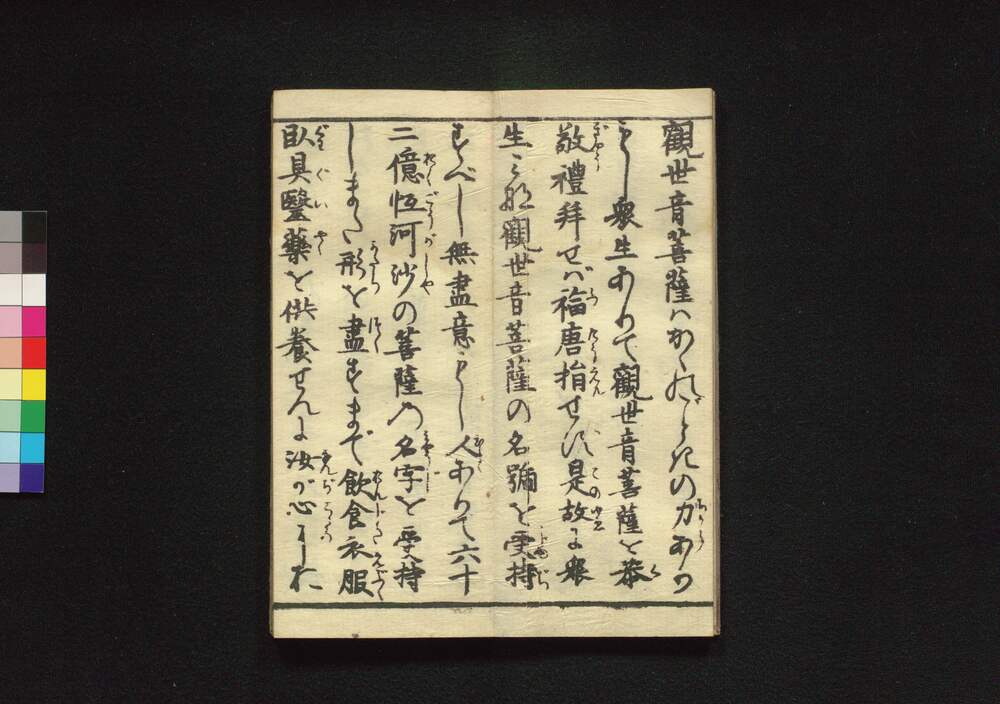 觀世音菩薩ハかくのごときの力あり
もし衆生ありて觀世音菩薩を恭
敬禮拜せバ福唐捐せず是故に衆
生みな觀世音菩薩の名號を受持
すべし無盡意もし人ありて六十
二億恒河沙の菩薩の名字を受持
しまた形を盡すまで飲食衣服
臥具醫藥を供養せんに汝が心に於